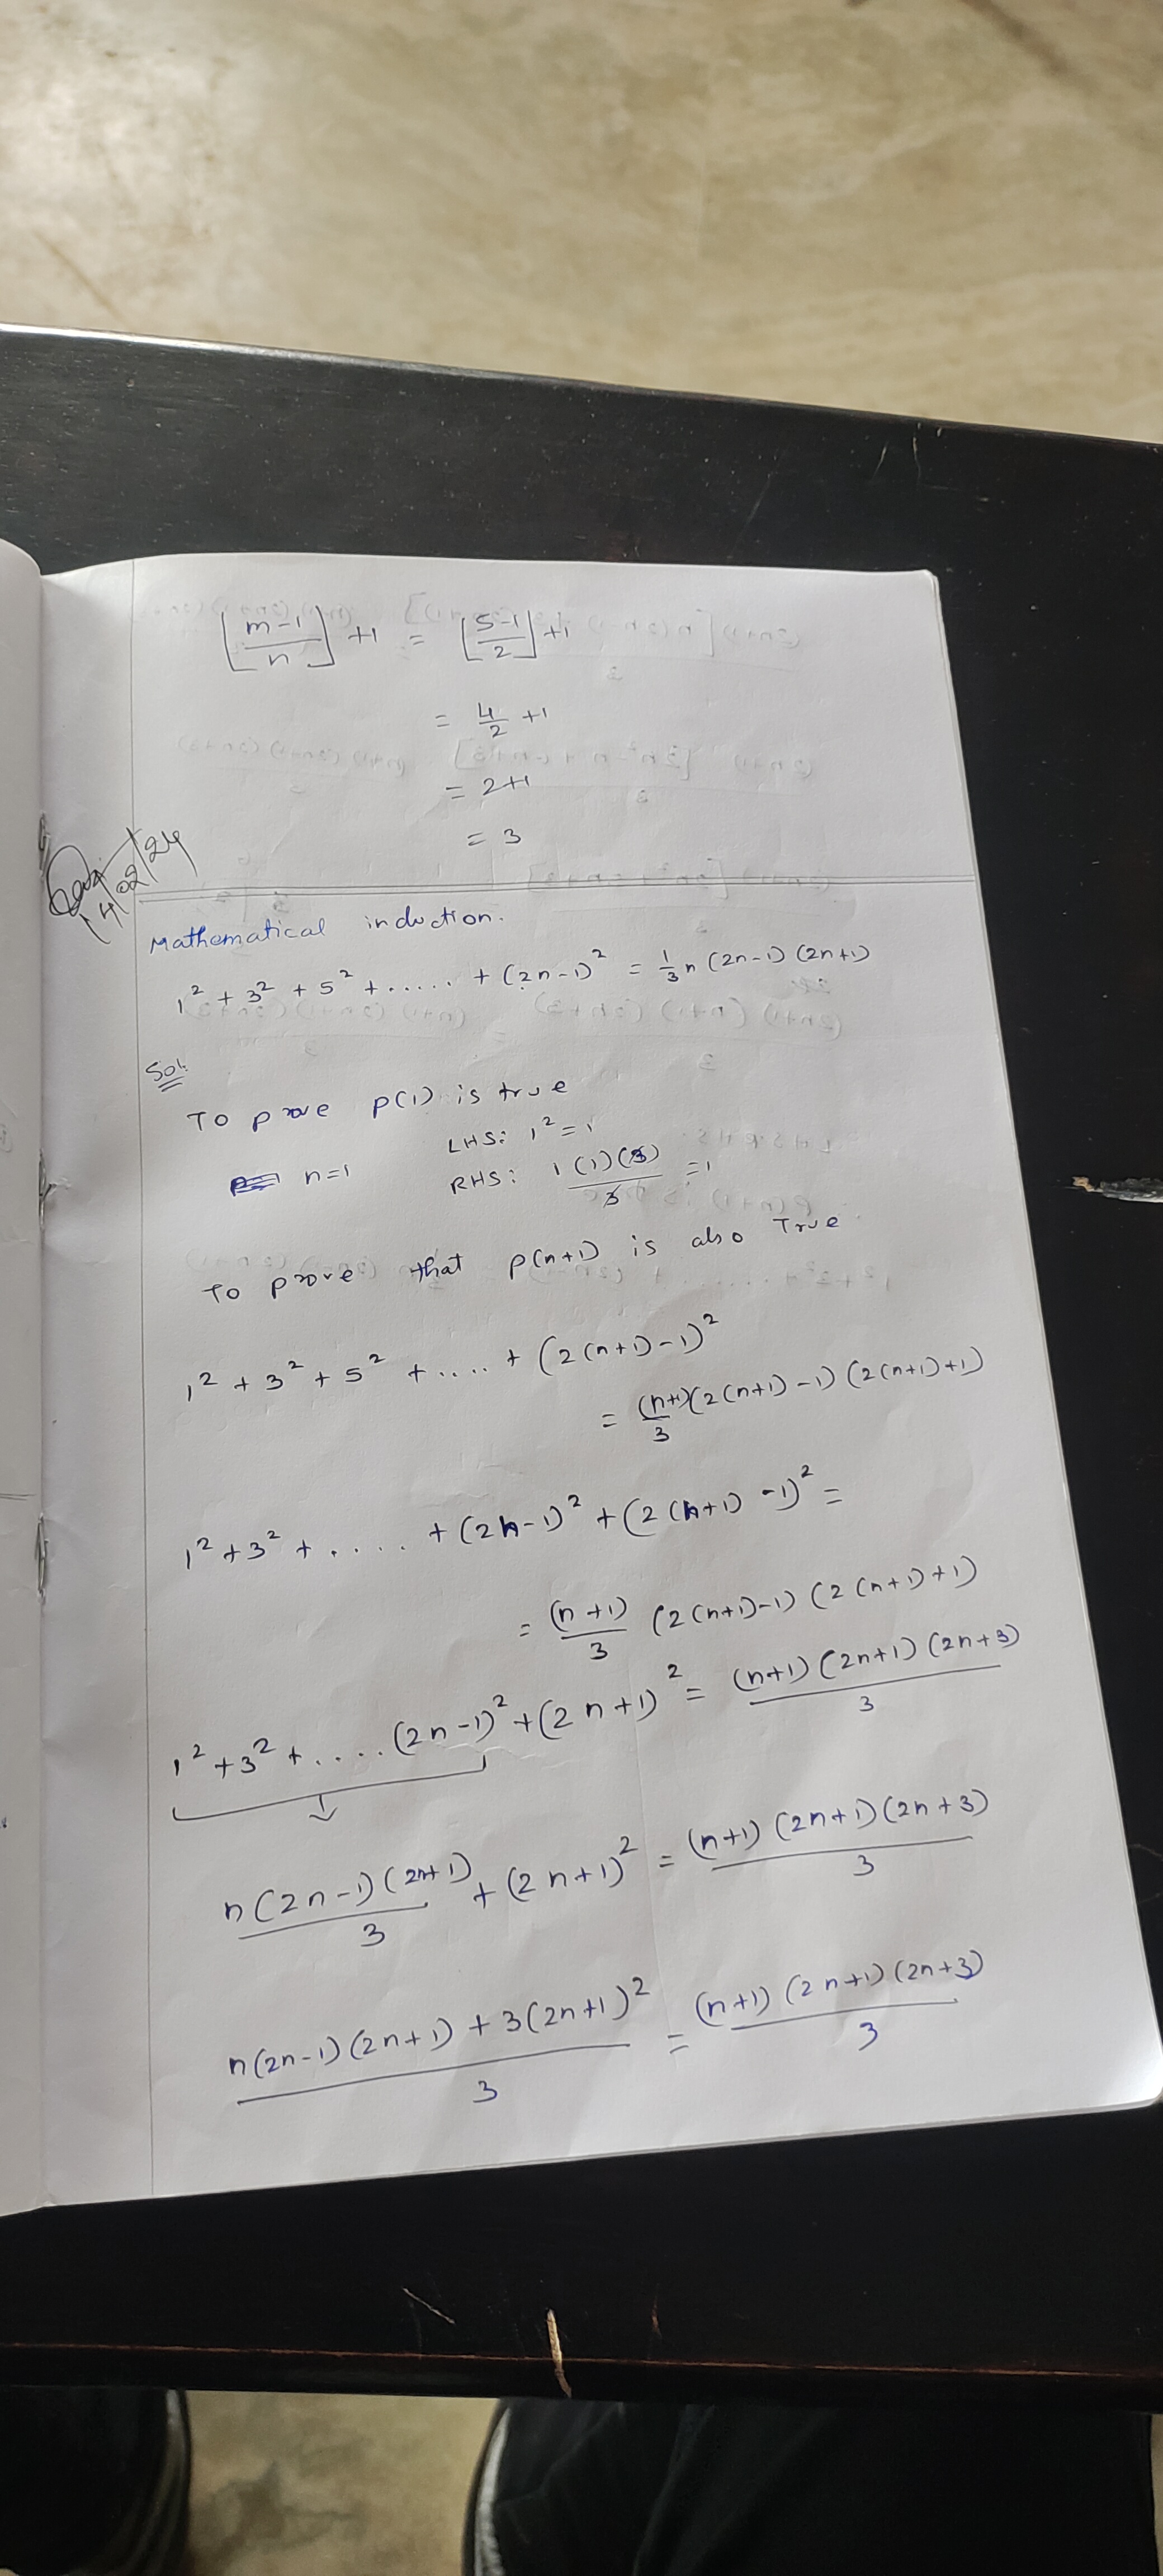 [m-1/n] +1 = [5-1/2] +1
= 4/2 +1
= 2+1
= 3
14/02/24
Mathematical induction.
1² + 3² + 5² + ..... + (2n-1)² = 1/3 n (2n-1) (2n+1)
Sol:
To prove p(1) is true
LHS: 1² = 1
n=1
RHS: 1 (1) (3)/3 = 1
To prove that p(n+1) is also True
1² + 3² + 5² + .... + (2(n+1)-1)²
= (n+1)/3 (2(n+1)-1) (2(n+1)+1)
1² + 3² + ..... + (2n-1)² + (2(n+1)-1)² =
= (n+1)/3 (2(n+1)-1) (2(n+1)+1)
1² + 3² + .... (2n-1)² + (2n+1)² = (n+1) (2n+1) (2n+3)/3
n(2n-1) (2n+1)/3 + (2n+1)² = (n+1) (2n+1) (2n+3)/3
n(2n-1) (2n+1) + 3(2n+1)²/3 = (n+1) (2n+1) (2n+3)/3